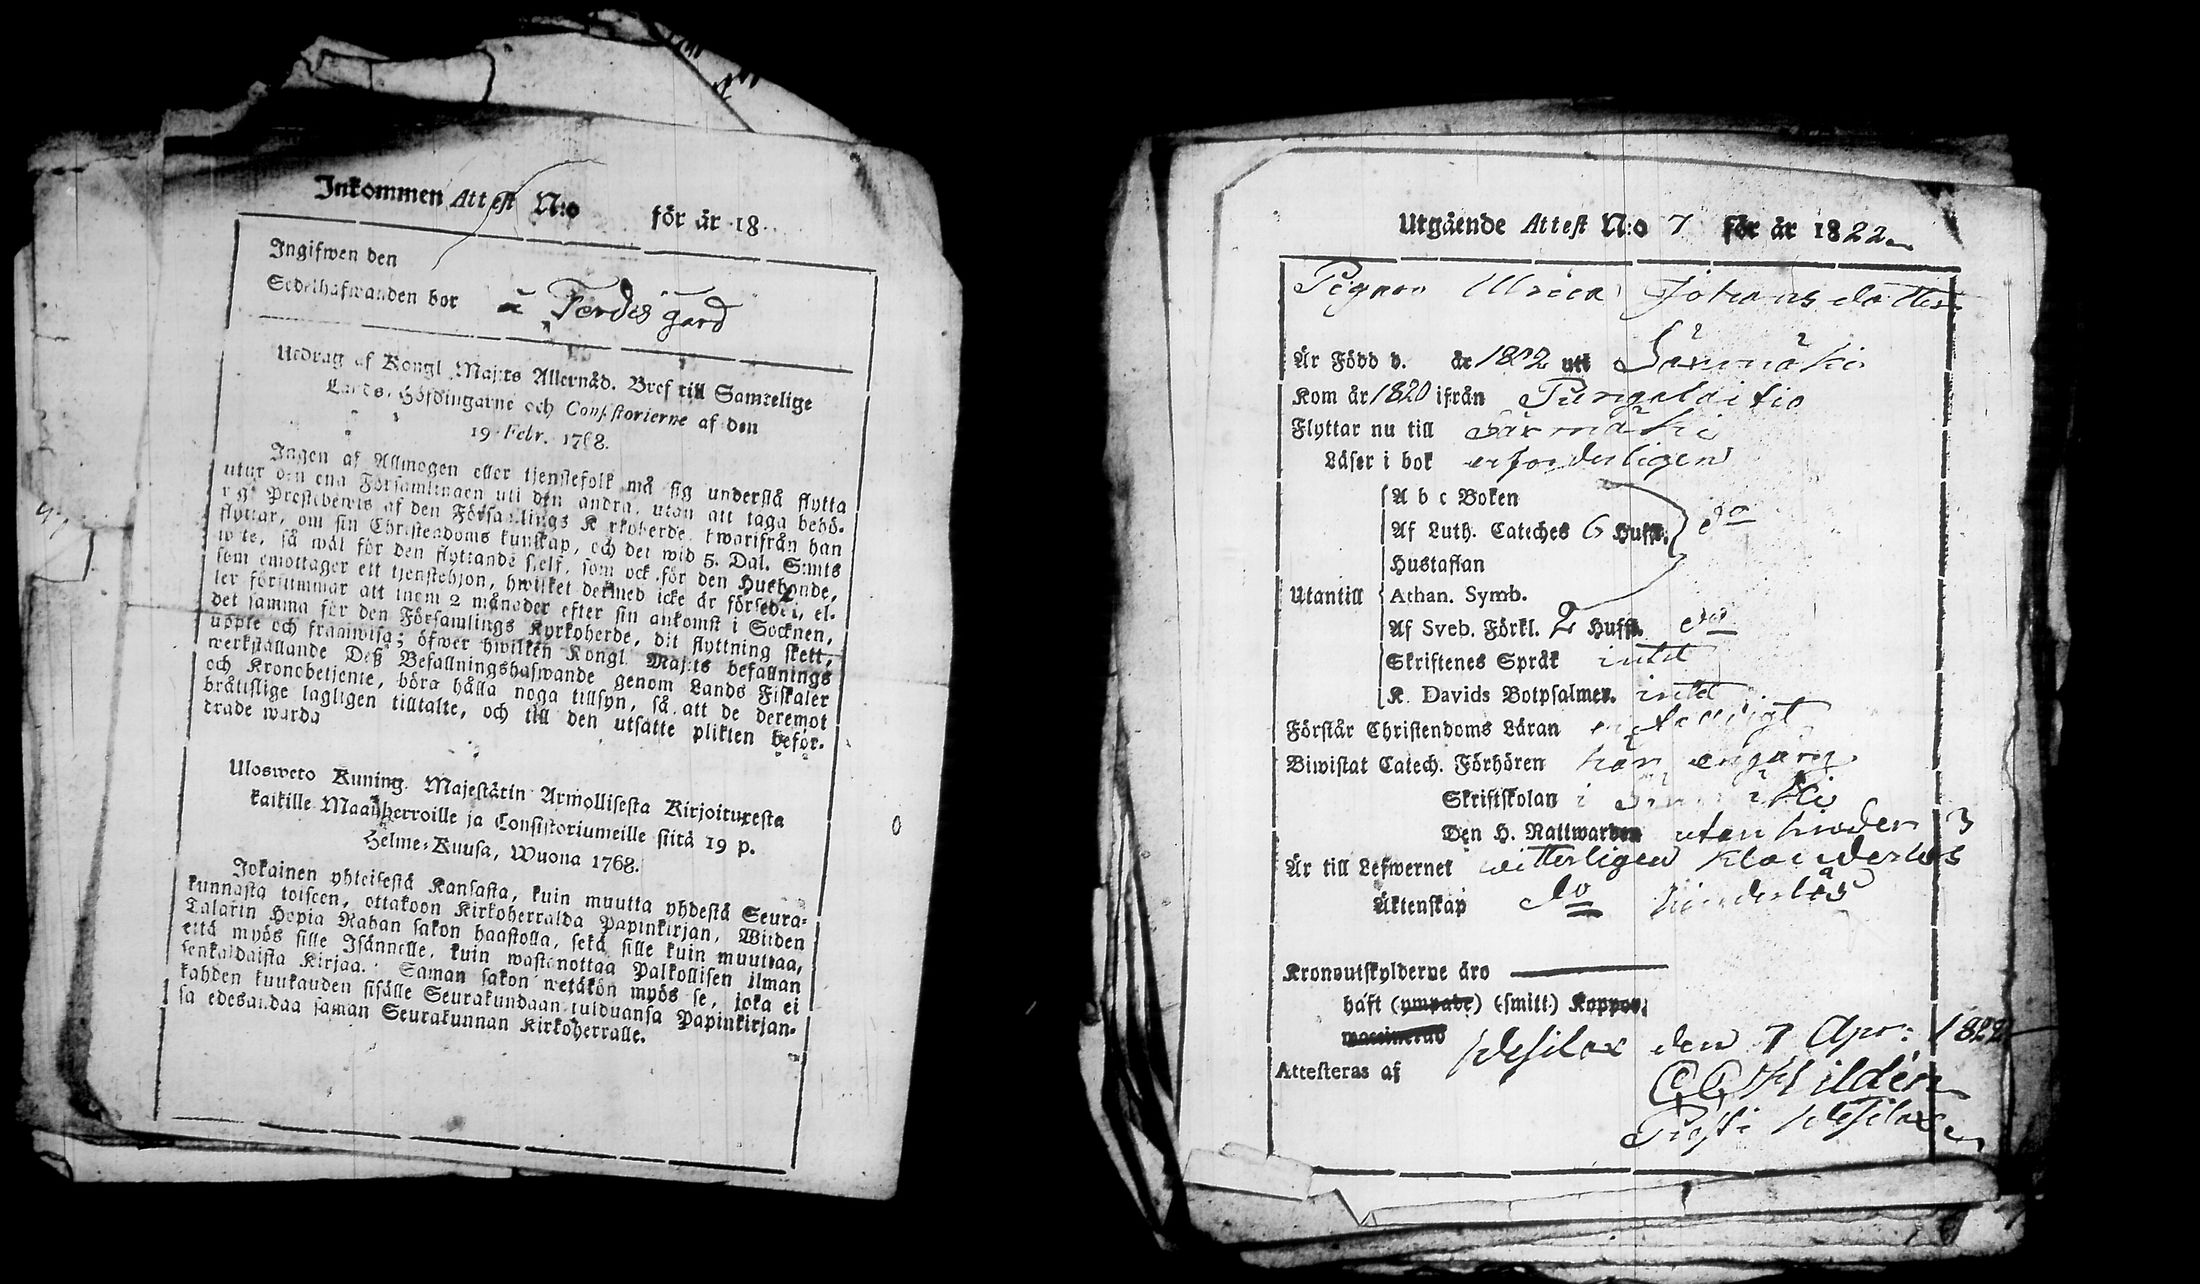 Inkommen Attest N:o för år 18
Ingifwen den
Sedelhafwanden bor å Ferdes gård
Utdrag af Kongl. Maj:ts Allernåd. Bref till Samtelige
Lands-Höfdingarne och Consistorierne af den
19 Febr. 1768.
Ingen af Allmogen eller tjenstefolk må sig understå flytta
utur den ena Församlingen uti den andra, utan att taga behö-
rigt Prestebewis af den Församlings Kyrkoherde, hwarifrån han
flyttar, om sin Christendoms kunskap, och det wid 5. Dal. S:mts
wite, så wäl för den flyttande sielf, som ock för den Husbonde,
som emottager ett tjenstehjon, hwilket dermed icke är försedt, el-
ler försummar att inom 2 månader efter sin ankomst i Socknen,
det samma för den Församlings Kyrkoherde, dit flyttning skett,
uppte och framwisa; öfwer hwilken Kongl. Maj:ts befallnings
werkställande Deß Befallningshafwande genom Lands Fiskaler
och Kronobetjente, böra hålla noga tillsyn, så att de deremot
bråttslige lagligen tilltalte, och till den utsatte plikten beför-
drade warda
Ulosweto Kuning. Majestätin Armollisesta Kirjoituxesta
kaikille Maanherroille ja Consistoriumeille siitä 19 p.
Helme-Kuusa, Wuona 1768.
Jokainen yhteisestä Kansasta, kuin muutta yhdestä Seura-
kunnasta toiseen, ottakoon Kirkoherralda Papinkirjan, Wiiden
Talarin Hopia Rahan sakon haastolla, sekä sille kuin muuttaa,
että myös sille Isännelle, kuin wastanottaa Palkollisen ilman
senkaldaista Kirjaa. Saman sakon wetäkön myös se, joka ei
kahden kuukauden sisälle Seurakundaan tulduansa Papinkirjan-
sa edesandaa saman Seurakunnan Kirkoherralle.
Utgående Attest N:o 7 för år 1822
Pigan Ulrica Johans dotter
Är Född d. år 1802 uti Särmäki
Kom år 1820 ifrån Pungalaitio
Flyttar nu till Särmäki
Läser i bok erforderligen
A b c Boken
Af Luth. Cateches 6 Hufst. do
Hustaflan
Utantill Athan. Symb.
Af Sveb. Förkl. 2 Hufst. do
Skriftenes Språk intet
K. Davids Botpsalmer. intet
Förstår Christendoms Läran enfalldigt
Biwistat Catech. Förhören här engång
Skriftskolan i
Den H. Nattwarden utan hinder
Är till Lefwernet witterligen klanderlös
Äktenskap do hinderlös
Kronoutskylderne äro
haft (ympade) (smitt.) Koppor.
waccinerad
Attesteras af Wesilax den 7 Apr: 1822